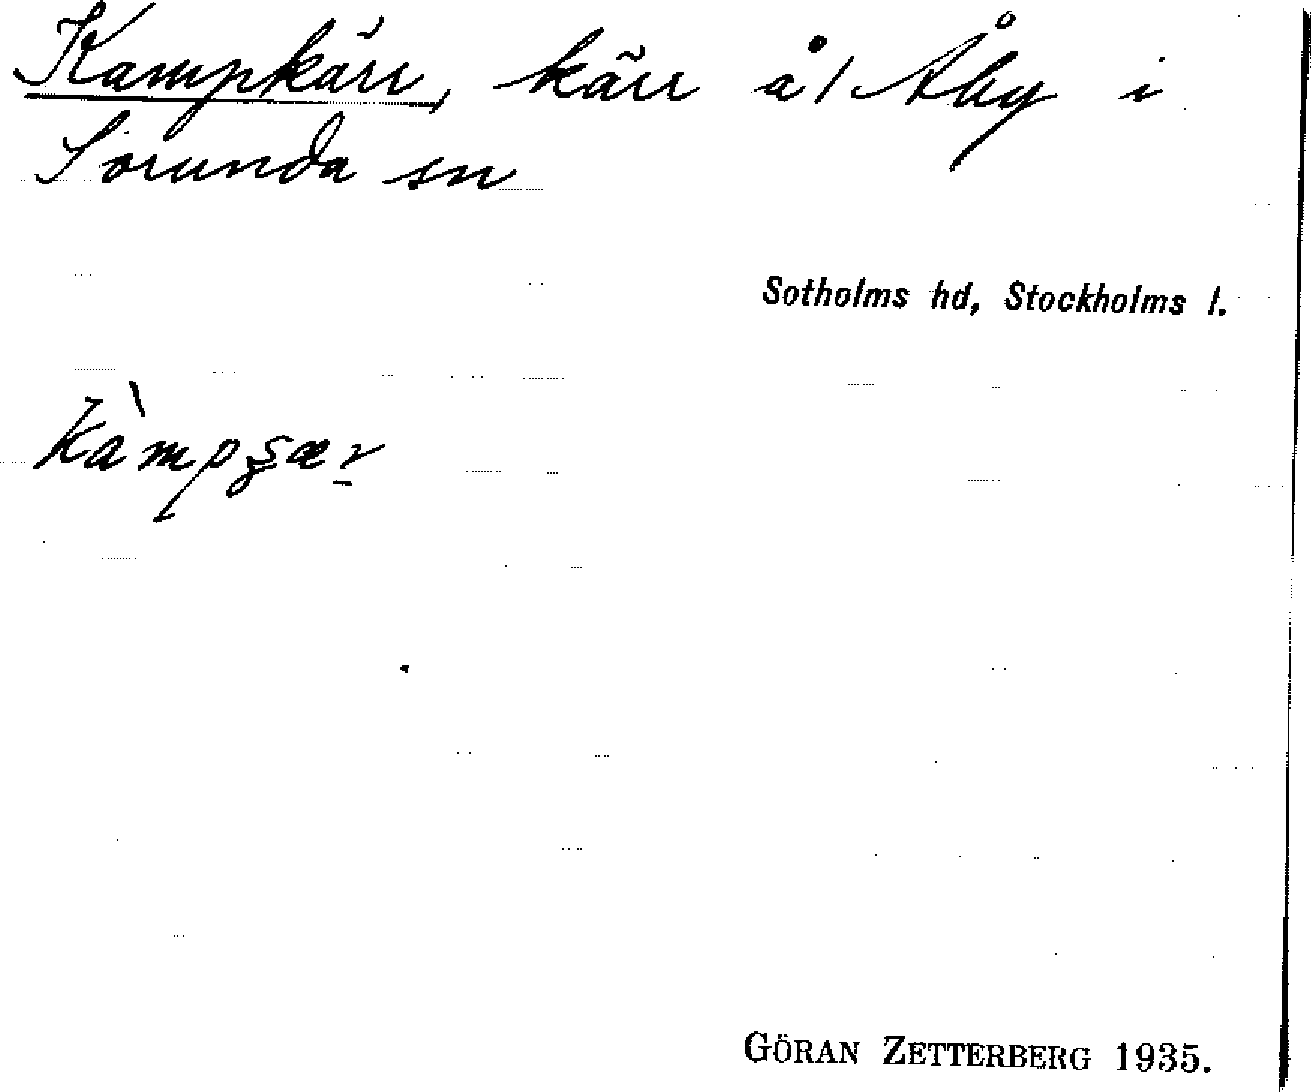 Kampkärr, kärr å/ Åby i
Sorunda sn
Sotholms hd, Stockholms l.
GÖRAN ZETTERBERG 1935.